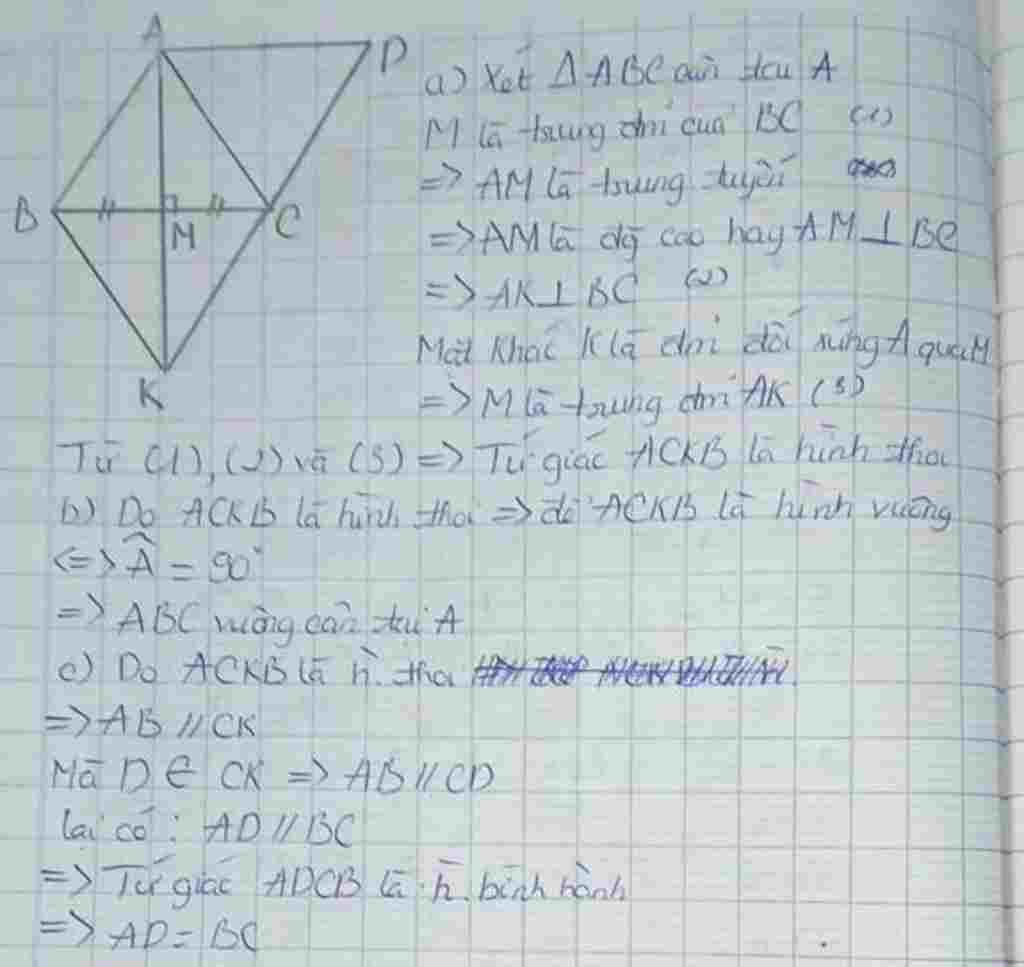 A
D
B
M
C
K
a) Xét Δ ABC cân tại A
M là trung đm của BC (1)
=> AM là trung tuyến
=> AM là đg cao hay AM ⊥ BC
=> AK ⊥ BC (2)
Mặt khác K là đm đối xứng A qua M
=> M là trung đm AK (3)
Từ (1), (2) và (3) => Tứ giác ACKB là hình thoi
b) Do ACKB là hình thoi => để ACKB là hình vuông
<=> Â = 90°
=> ABC vuông cân tại A
c) Do ACKB là h. thoi
=> AB // CK
Mà D ∈ CK => AB // CD
lại có : AD // BC
=> Tứ giác ADCB là h. bình hành
=> AD = BC